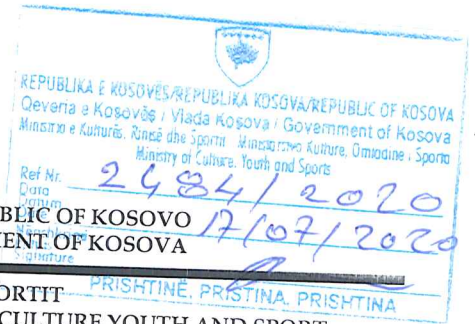 REPUBLIKA E KOSOVËS/REPUBLIKA KOSOVA/REPUBLIC OF KOSOVA
Qeveria e Kosovës / Vlada Kosova / Government of Kosova
Ministria e Kulturës, Rinisë dhe Sportit Ministarstvo Kulture, Omladine i Sporta
Ministry of Culture, Youth and Sports
Ref Nr. 2484/2020
Data
Datum 17/07/2020
BLIC OF KOSOVO
MENT OF KOSOVA
Signature
PRISHTINË, PRISTINA, PRISHTINA
ORTIT
CULTURE YOUTH AND SPORT